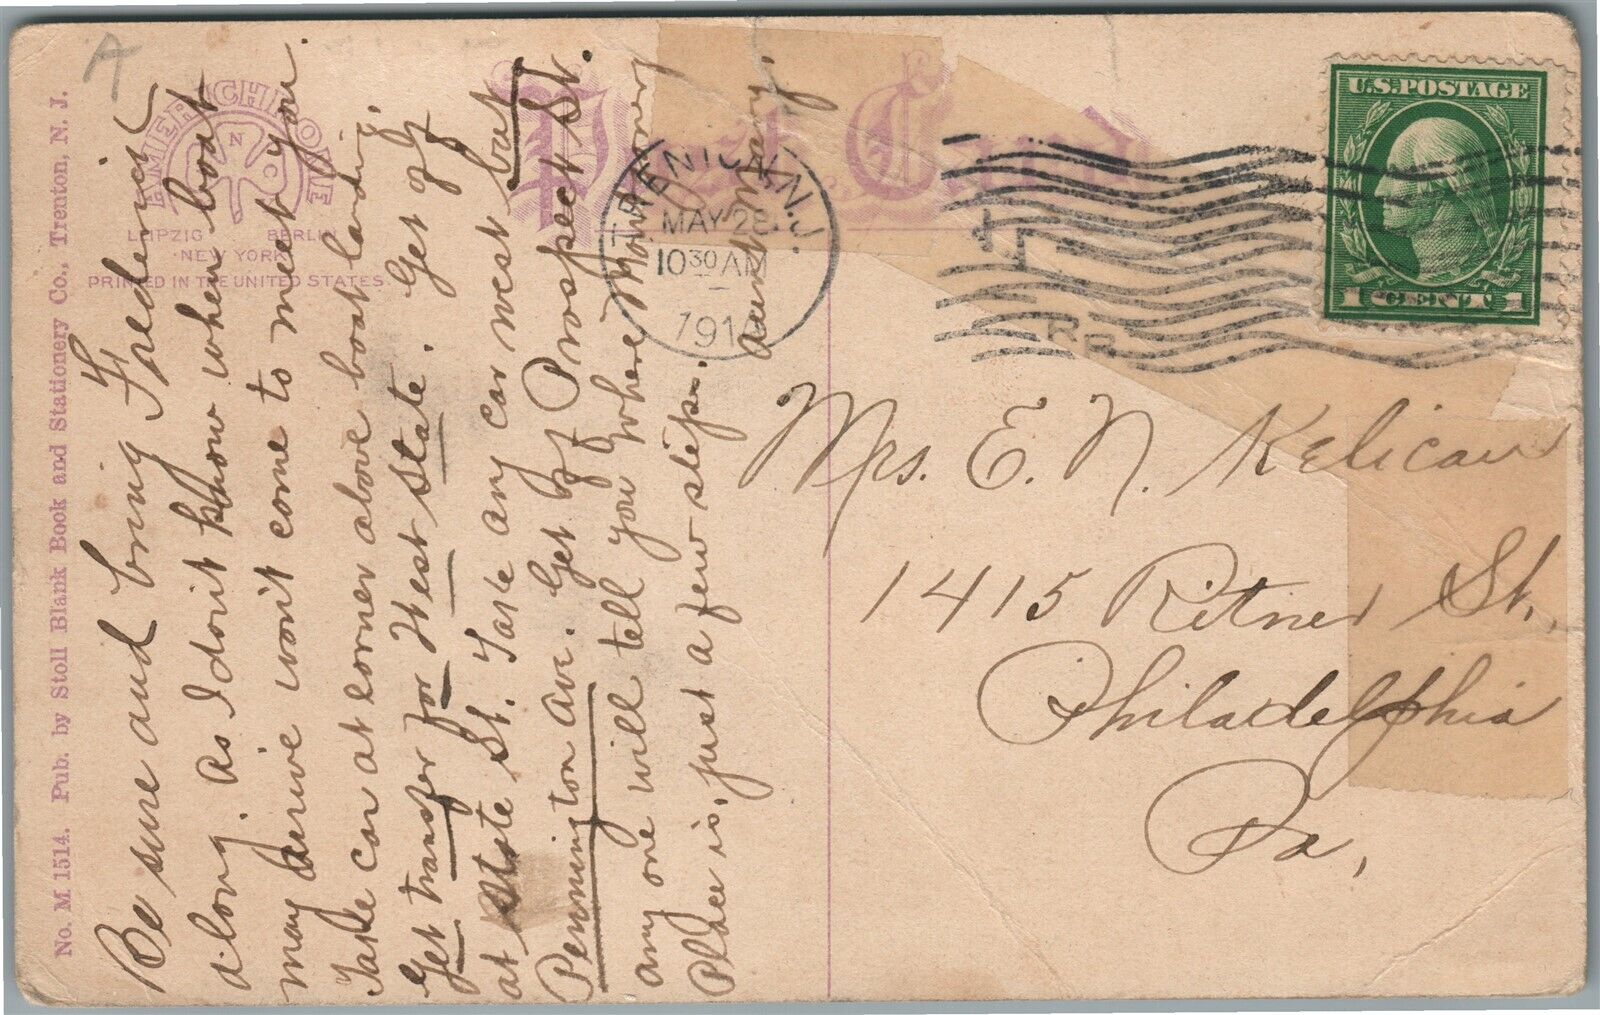 A
No. M 1514. Pub. by Stoll Blank Book and Stationery Co., Trenton, N. J.
AMERICHROME
N
C
LEIPZIG BERLIN
NEW YORK
PRINTED IN THE UNITED STATES
Post Card
TRENTON, N.J.
MAY 28
10 30 AM
191
U.S. POSTAGE
1 CENT 1
Be sure and bring Frederick
along. As I don't know when boat
may arrive won't come to meet you.
Take car at corner above boat landing.
Get transfer for West State. Get off
at State St. Take any car west but
Pennington Ave. Get off Prospect St.
any one will tell you where
Place is, just a few steps.
Aunt Mary.
Mrs. E. N. Kelican
1415 Ritner St.,
Philadelphia
Pa,